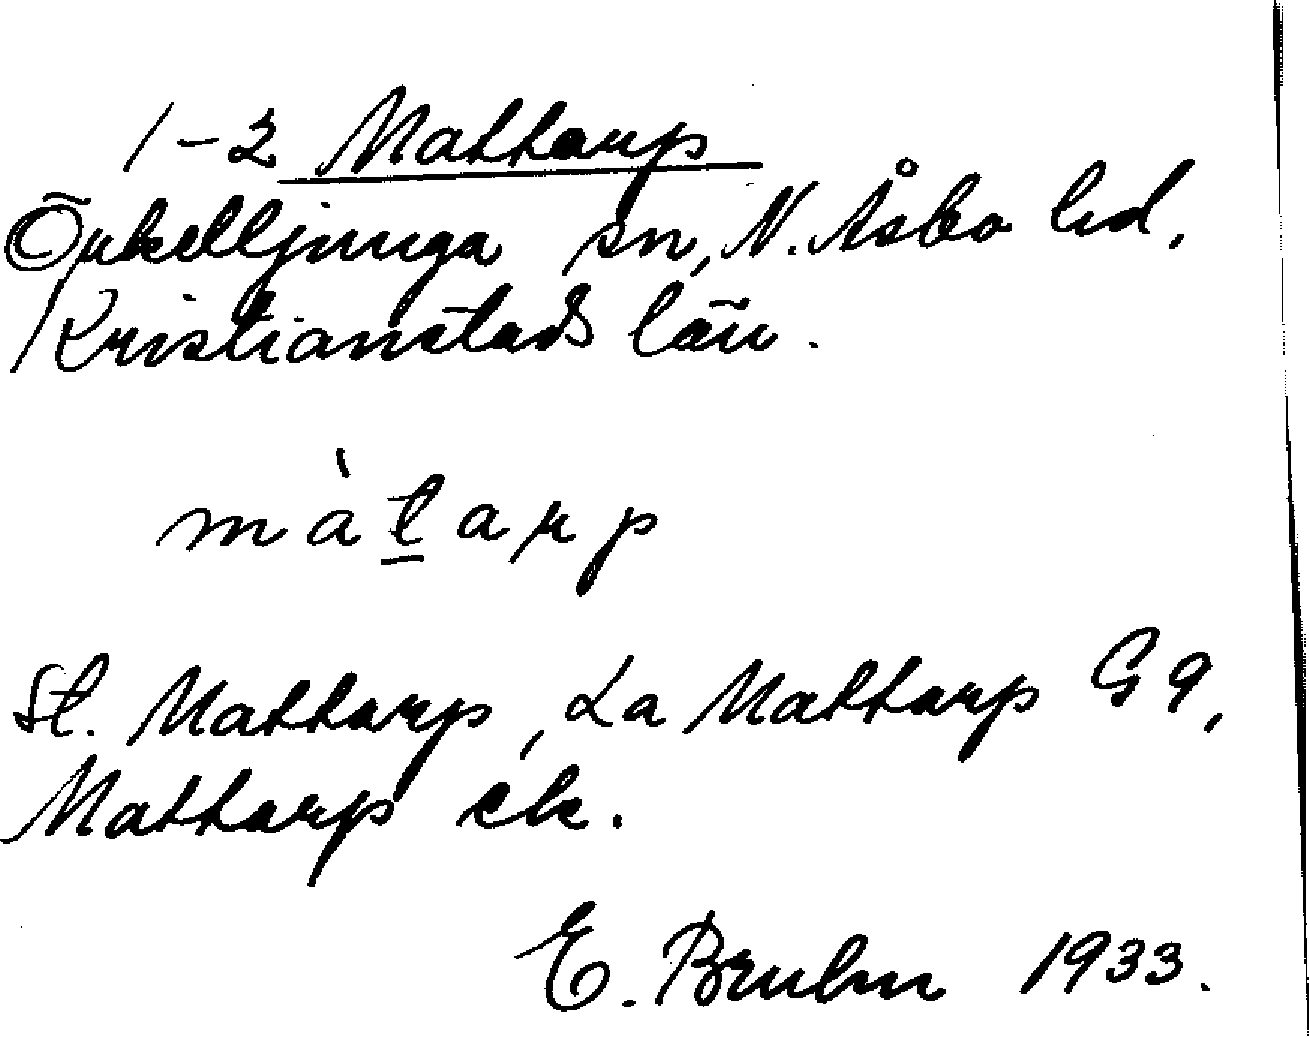 1-2 Mattarp
Örkelljunga sn, N. Åsbo hd,
Kristianstads län.
màt̲arp
St. Mattarp, La Mattarp G 9,
Mattarp ek.
E. Bruhn 1933.